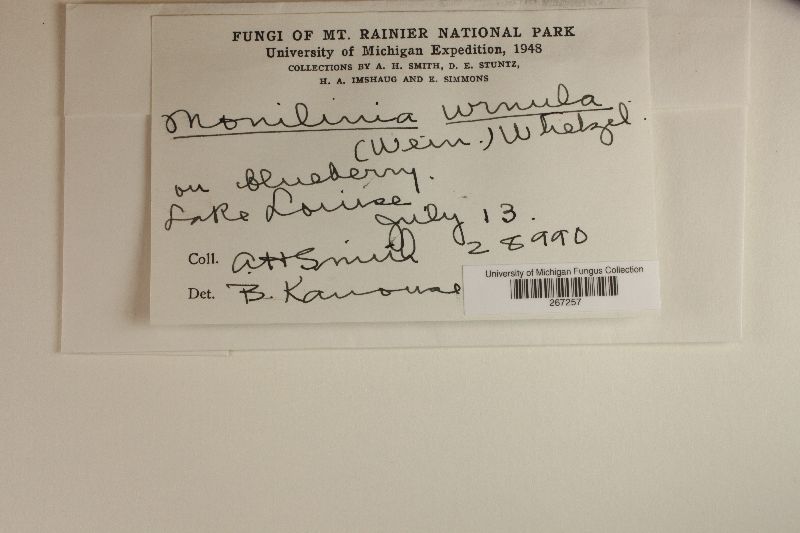 FUNGI OF MT. RAINIER NATIONAL PARK
University of Michigan Expedition, 1948
COLLECTIONS BY A. H. SMITH, D. E. STUNTZ,
H. A. IMSHAUG AND E. SIMMONS
Monilinia urnula
(Wein.) Whetzel.
on blueberry.
Lake Louise
July 13.
Coll. AHSmith 28990
Det. B. Kanouse
University of Michigan Fungus Collection
267257